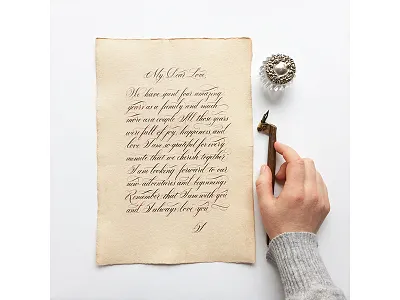 My Dear Love,
We have spent four amazing
years as a family and much
more as a couple. All these years
were full of joy, happiness and
love. I am so grateful for every
minute that we cherish together.
I am looking forward to our
new adventures and beginnings.
Remember that I am with you
and I always love you